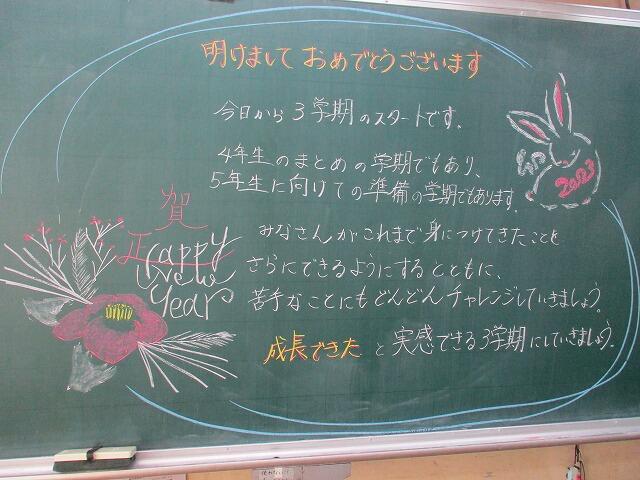 明けまして おめでとうございます
今日から3学期のスタートです。
4年生のまとめの学期でもあり、
5年生に向けての準備の学期でもあります。
みなさんがこれまで身につけてきたことを
さらにできるようにするとともに、
苦手なことにもどんどんチャレンジしていきましょう。
成長できた と実感できる3学期にしていきましょう。
2023
賀
正
Happy
New
Year